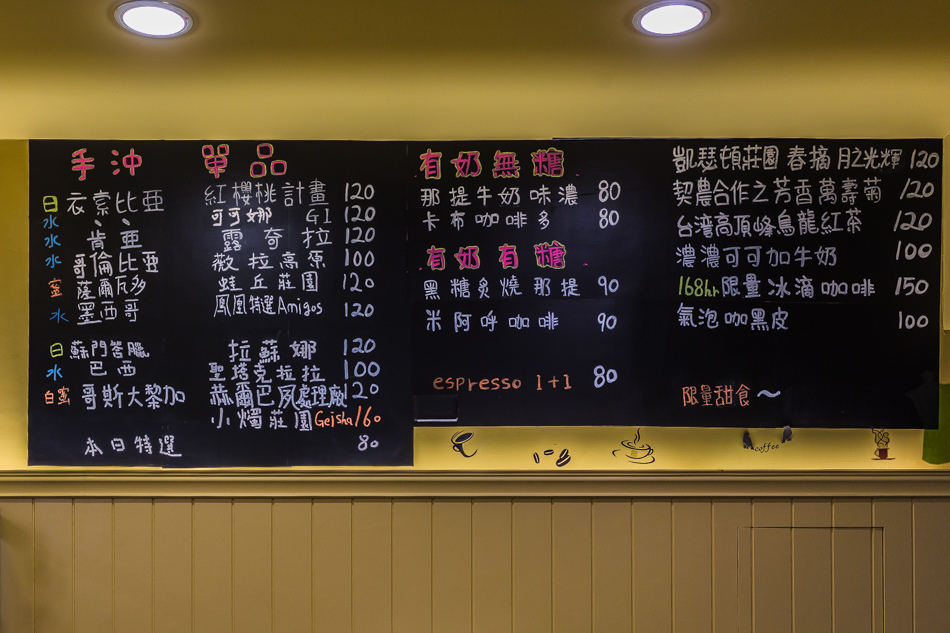 手沖 單品
日 衣索比亞 紅櫻桃計畫 120
水 、、 可可娜 G1 120
水 肯亞 露奇拉 120
水 哥倫比亞 薇拉高原 100
蜜 薩爾瓦多 蛙丘莊園 120
水 墨西哥 鳳凰特選Amigos 120
日 蘇門答臘 拉蘇娜 120
水 巴西 聖塔克拉拉 100
白蜜 哥斯大黎加 赫爾巴夙處理廠 120
小燭莊園 Geisha 160
本日特選 80
有奶無糖
那提牛奶味濃 80
卡布咖啡多 80
有奶有糖
黑糖炙燒那提 90
米阿呼咖啡 90
espresso 1+1 80
凱瑟頓莊園 春摘 月之光輝 120
契農合作之芳香萬壽菊 120
台湾高頂峰烏龍紅茶 120
濃濃可可加牛奶 100
168hr限量冰滴咖啡 150
氣泡咖黑皮 100
限量甜食～
coffee